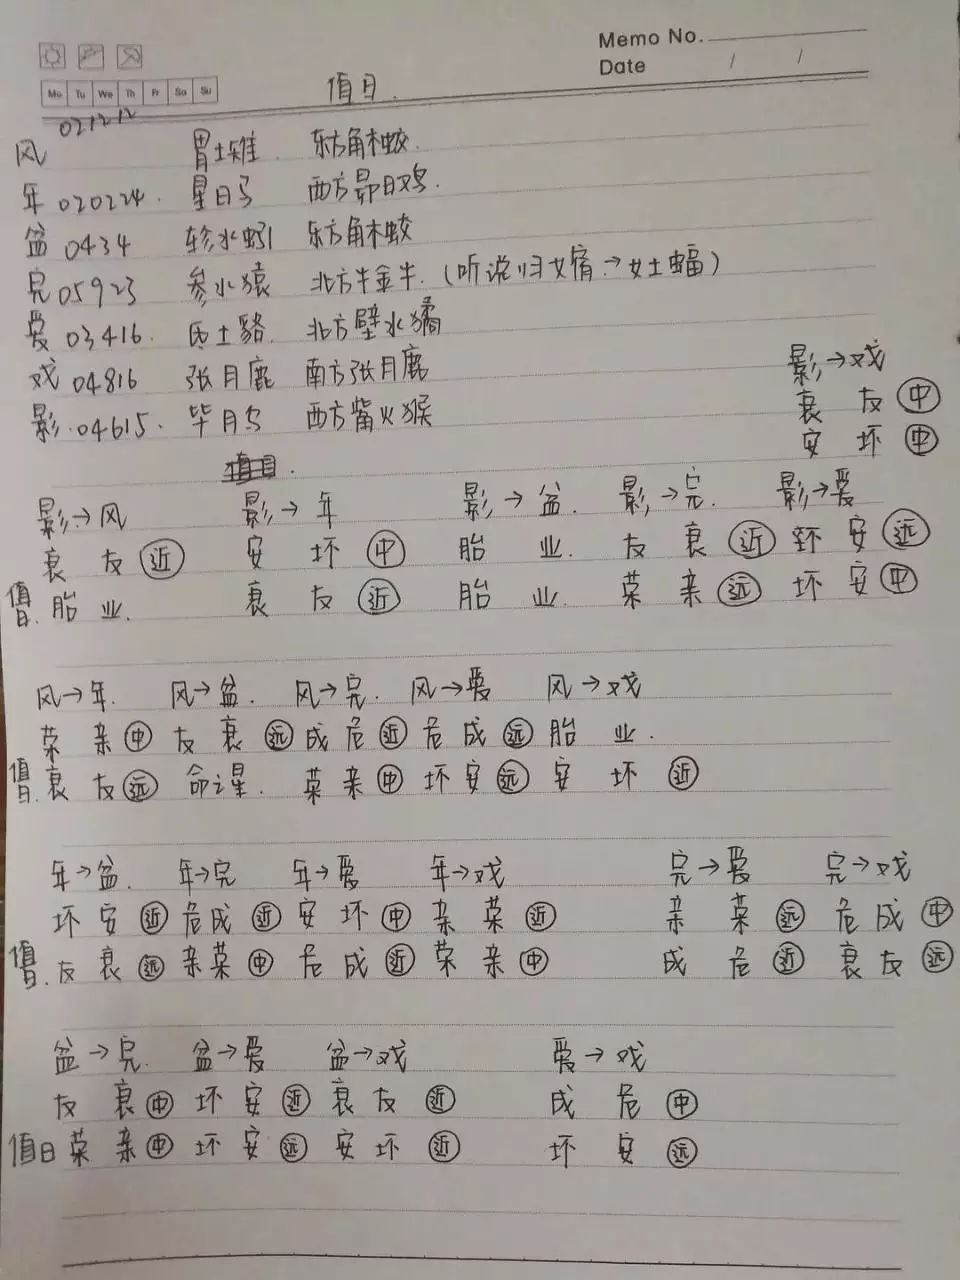 Memo No.
Date / /
Mo Tu We Th Fr Sa Su
值日.
021212
风 胃土雉 东方角木蛟.
年 020224. 星日马 西方昴日鸡.
盆 0434 轸水蚓 东方角木蛟
完 05923 参水猿 北方牛金牛. (听说归女宿→女土蝠)
爱 03416. 氐土貉. 北方壁水獝
戏 04816 张月鹿 南方张月鹿
影.04615. 毕月乌 西方觜火猴
影→戏
衰 友 中
安 坏 中
影→风 影→年 影→盆. 影→完. 影→爱
衰 友 近 安 坏 中 胎 业. 友 衰 近 坏 安 远
值日. 胎 业. 衰 友 近 胎 业. 荣 亲 远 坏 安 中
风→年. 风→盆. 风→完. 风→爱 风→戏
荣 亲 中 友 衰 远 成 危 近 危 成 远 胎 业.
值日. 衰 友 远 命之星. 荣 亲 中 坏 安 远 安 坏 近
年→盆. 年→完 年→爱 年→戏 完→爱 完→戏
坏 安 近 危 成 近 安 坏 中 亲 荣 近 亲 荣 远 危 成 中
值日. 友 衰 远 亲 荣 中 危 成 近 荣 亲 中 成 危 近 衰 友 远
盆→完. 盆→爱 盆→戏 爱→戏
友 衰 中 坏 安 近 衰 友 近 成 危 中
值日 荣 亲 中 坏 安 远 安 坏 近 坏 安 远